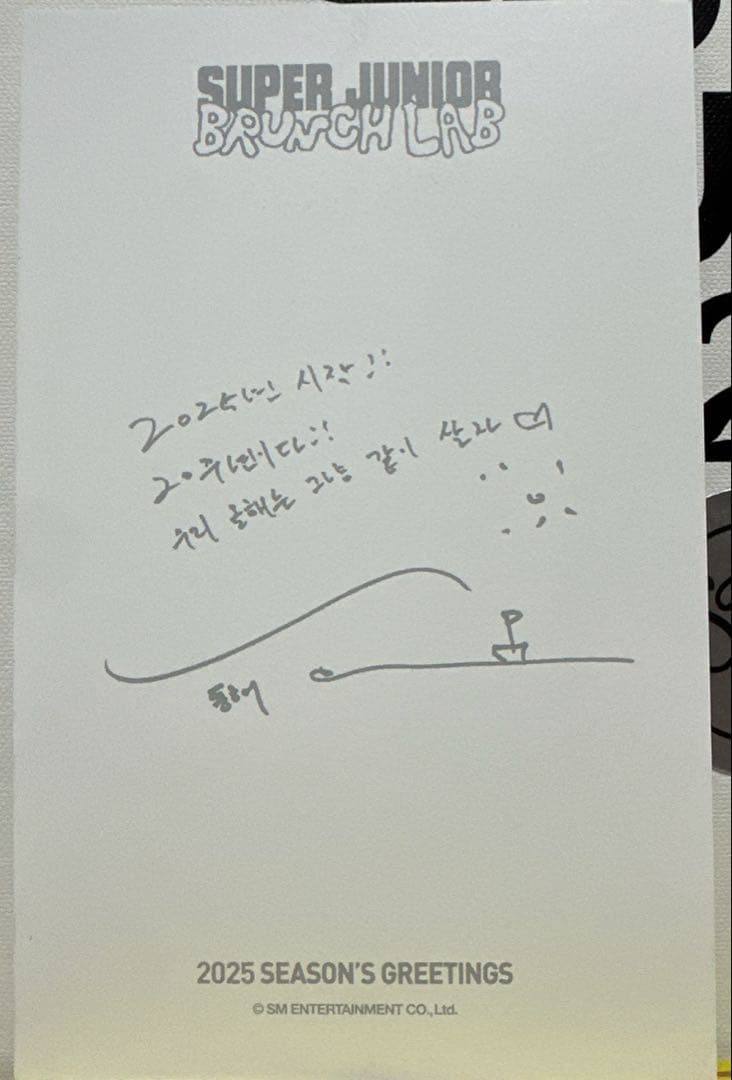 SUPER JUNIOR
BRUNCH LAB
2025년 시작!!
20주년이다!!
우리 올해는 그냥 같이 살자
동해
2025 SEASON'S GREETINGS
© SM ENTERTAINMENT CO., Ltd.